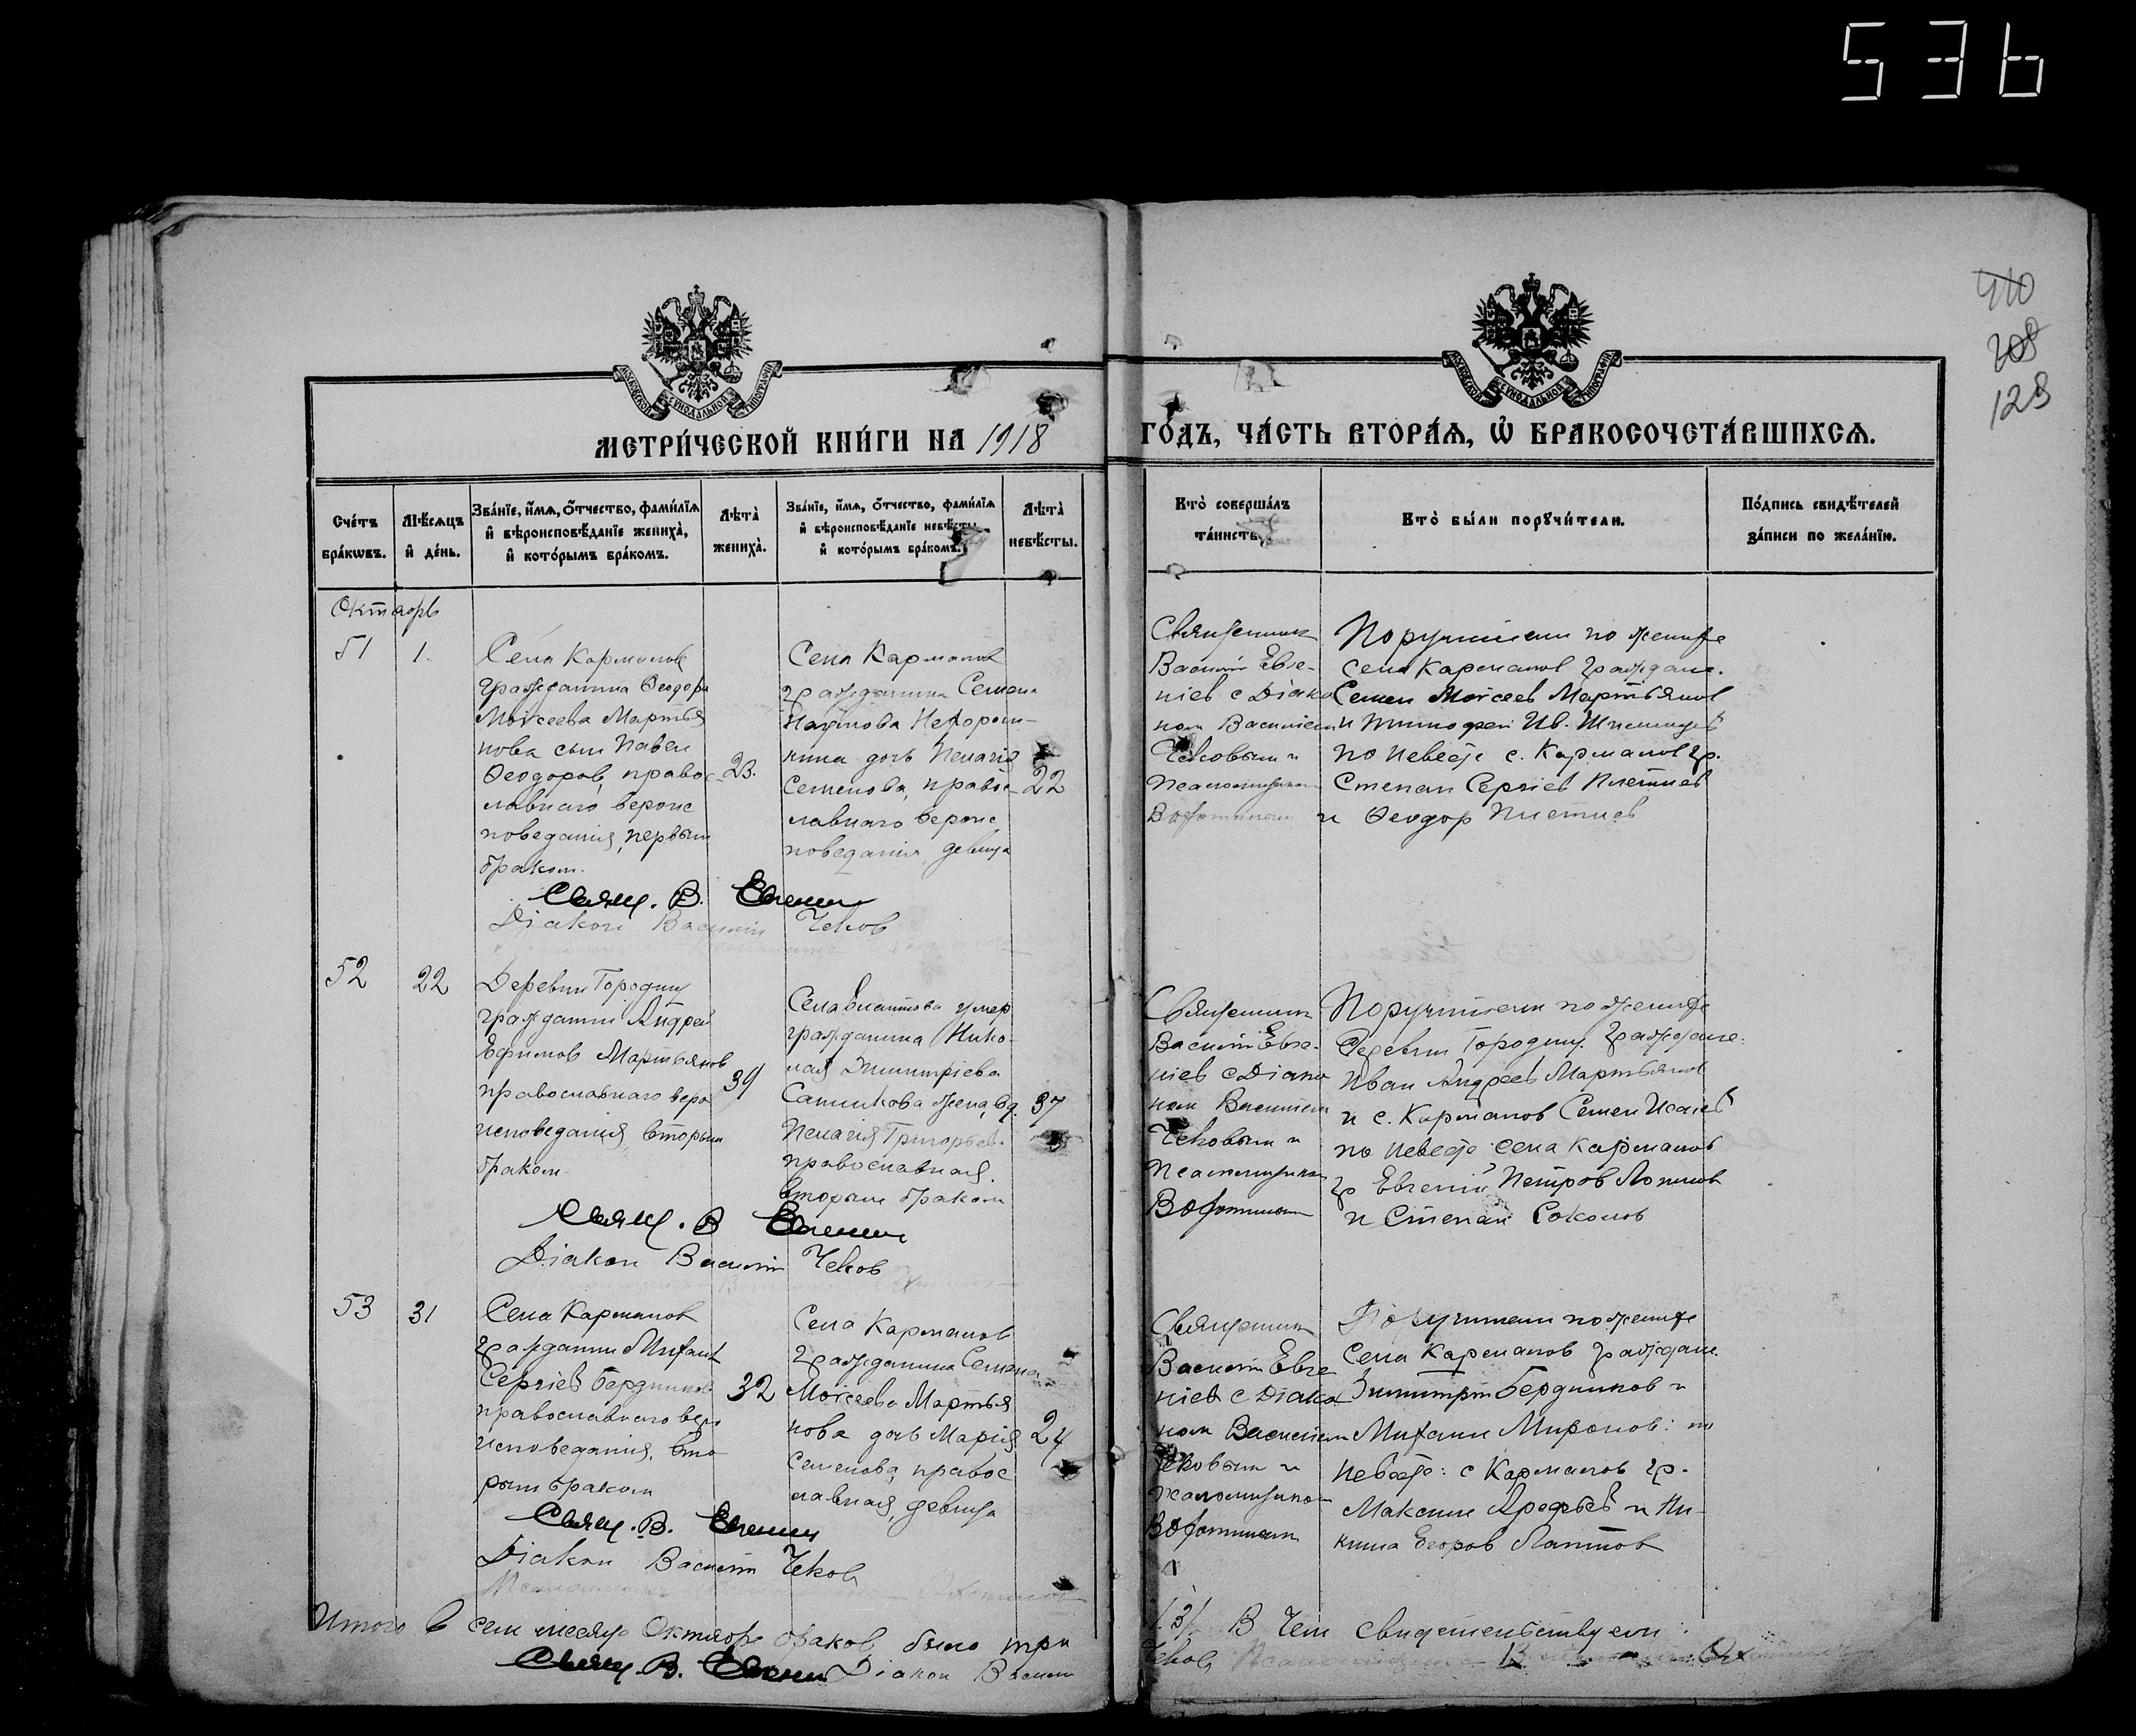 536
410
208
128
МЕТРИ́ЧЕСКОЙ КНИ́ГИ НА 1918 ГО́ДЪ, ЧА́СТЬ ВТОРА́Я, Ѡ҆ БРАКОСОЧЕТА́ВШИХСЯ.
Сче́тъ бра́кѡвъ.
Мѣ́сяцъ и҆ де́нь.
Зва́нїе, и҆́мя, ѻ҆́тчество, фами́лїя
и҆ вѣроисповѣ́данїе жениха̀,
и҆ кото́рымъ бра́комъ.
Лѣта̀ жениха̀.
Зва́нїе, и҆́мя, ѻ҆́тчество, фами́лїя
и҆ вѣроисповѣ́данїе невѣ́сты,
и҆ кото́рымъ бра́комъ.
Лѣта̀ невѣ́сты.
Кто̀ соверша́лъ
та́инство.
Кто̀ бы́ли порꙋчи́тели.
По́дпись свидѣ́телей
за́писи по жела́нїю.
Октябрь
51
1.
Села Карманов
гражданина Ѳеодора
Моисеева Мартья
нова сын Павел
Ѳеодоров, правос
лавнаго вероис
поведания, первым
браком.
23.
Села Карманов
гражданина Семена
Наумова
кина дочь Пелагия
Семенова, правос
лавнаго вероис
поведания, девица
22
Священник
Василий Евге-
ниев с Діако
ном Василием
Чеховым и
Псаломщиком
Поручители по женихе
Села Карманов граждане.
Семен Моисеев Мартьянов
и Тимофей Ив.
по невесте с. Карманов гр.
Степан Сергіев Плетнев
и Ѳеодор Плетнев
Свящ. В. Евгеньев
Діакон Василий Чехов
52
22
Деревни Городищ
гражданин Андрей
Ефимов Мартьянов
православнаго веро
исповедания, вторым
браком
39
Села умер
гражданина Нико-
лая Димитріева
Сапикова жена, вд.
Пелагия Григорьев.
православная.
вторым браком
37
Священник
Василий Евге-
ниев с Діако
ном Василием
Чеховым и
Псаломщиком
Поручители по женихе
Деревни Городищ. граждане.
Иван Андреев Мартьянов
и с. Карманов Семен Исаев
по невесте села Карманов
гр Евгений Петров
и Степан Соколов
Свящ. В Евгеньев
Діакон Василий Чехов
53
31
Села Карманов
гражданин Михаил
Сергіев Бердников
православнаго веро
исповедания, вто
рым браком
32
Села Карманов
гражданина Семена
Моисеева Мартья
нова дочь Мария
Семенова, правос
лавная, девица
24
Священник
Василий Евге
ниев с Діако
ном Василием
Чеховым и
псаломщиком
Поручители по женихе
Села Карманов граждане
Димитрий Бердников и
Михаил Миронов: по
невесте: с Карманов гр.
Максим Арефьев и Ни-
кита Егоров Лаптов
Свящ. В. Евгеньев
Діакон Василий Чехов
Итого в сем месяце Октябре браков было три /3/. В чем свидетельствуем:
Свящ. В. Евгеньев Діакон Василий Чехов,